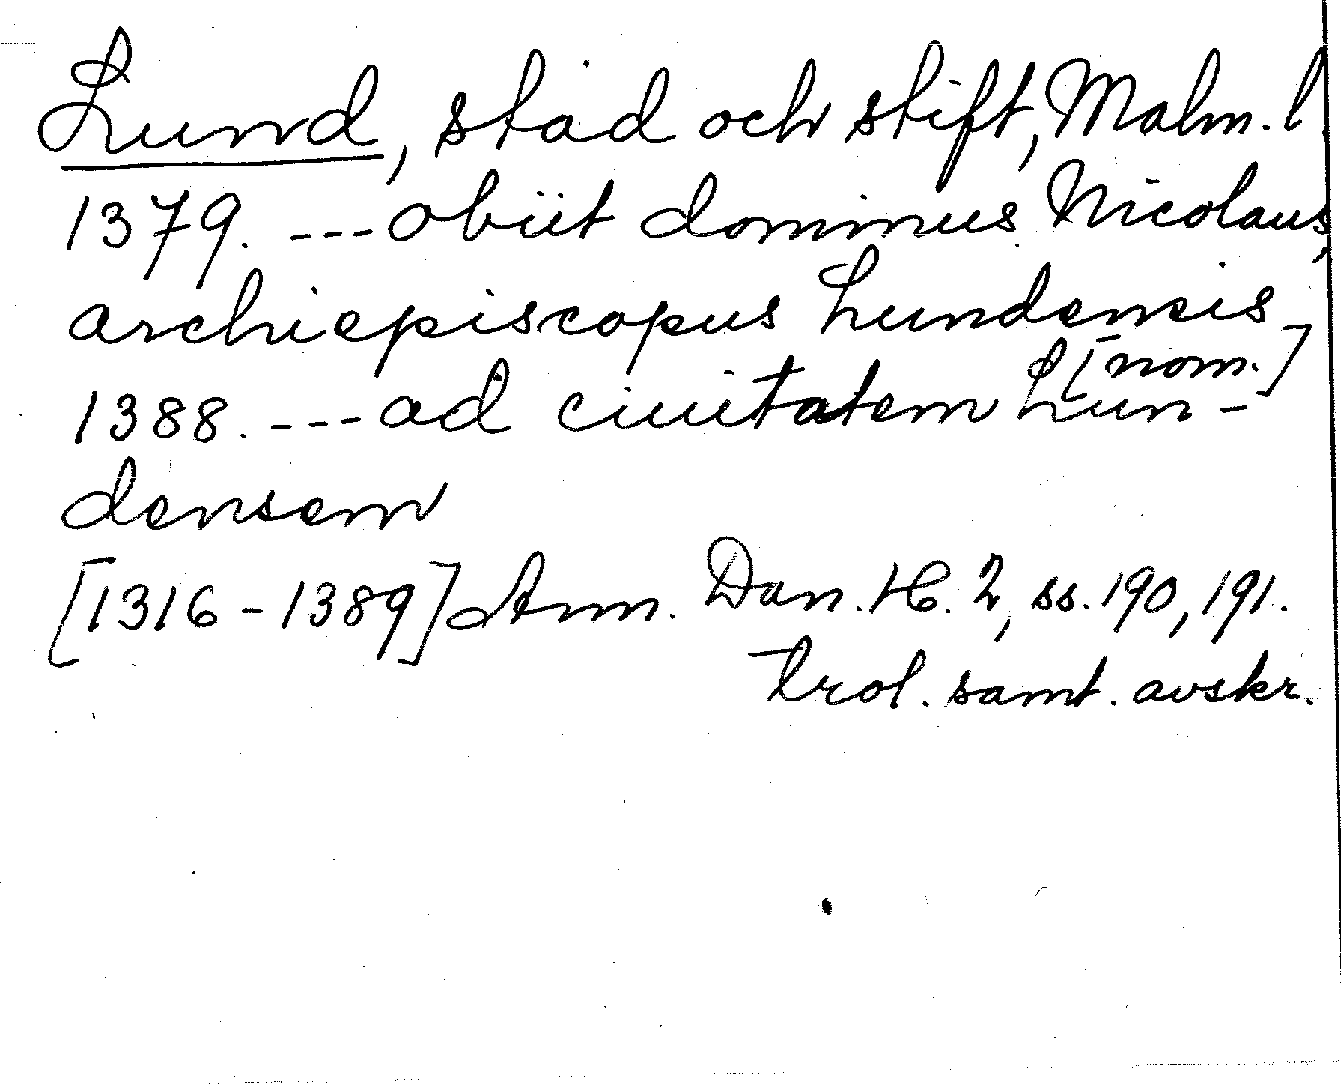 Lund, stad och stift, Malm. l.
1379. --- obiit dominus Nicolaus,
archiepiscopus Lundensis
[nom.]
1388. --- ad ciuitatem Lun-
densem
[1316-1389] Ann. Dan. H. 2, ss. 190, 191.
trol. samt. avskr.